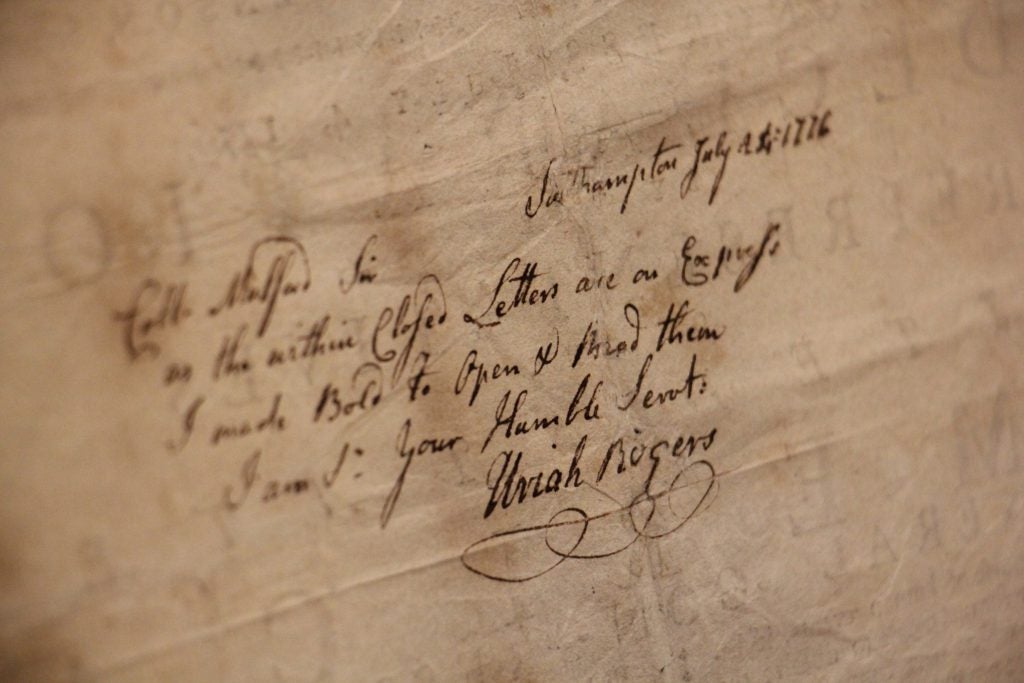 Southampton July 24: 1776
Collo. Mulford Sir
as the within Closed Letters are on Express
I made Bold to Open & Read them
I am Sr. Your Humble Servt:
Uriah Rogers